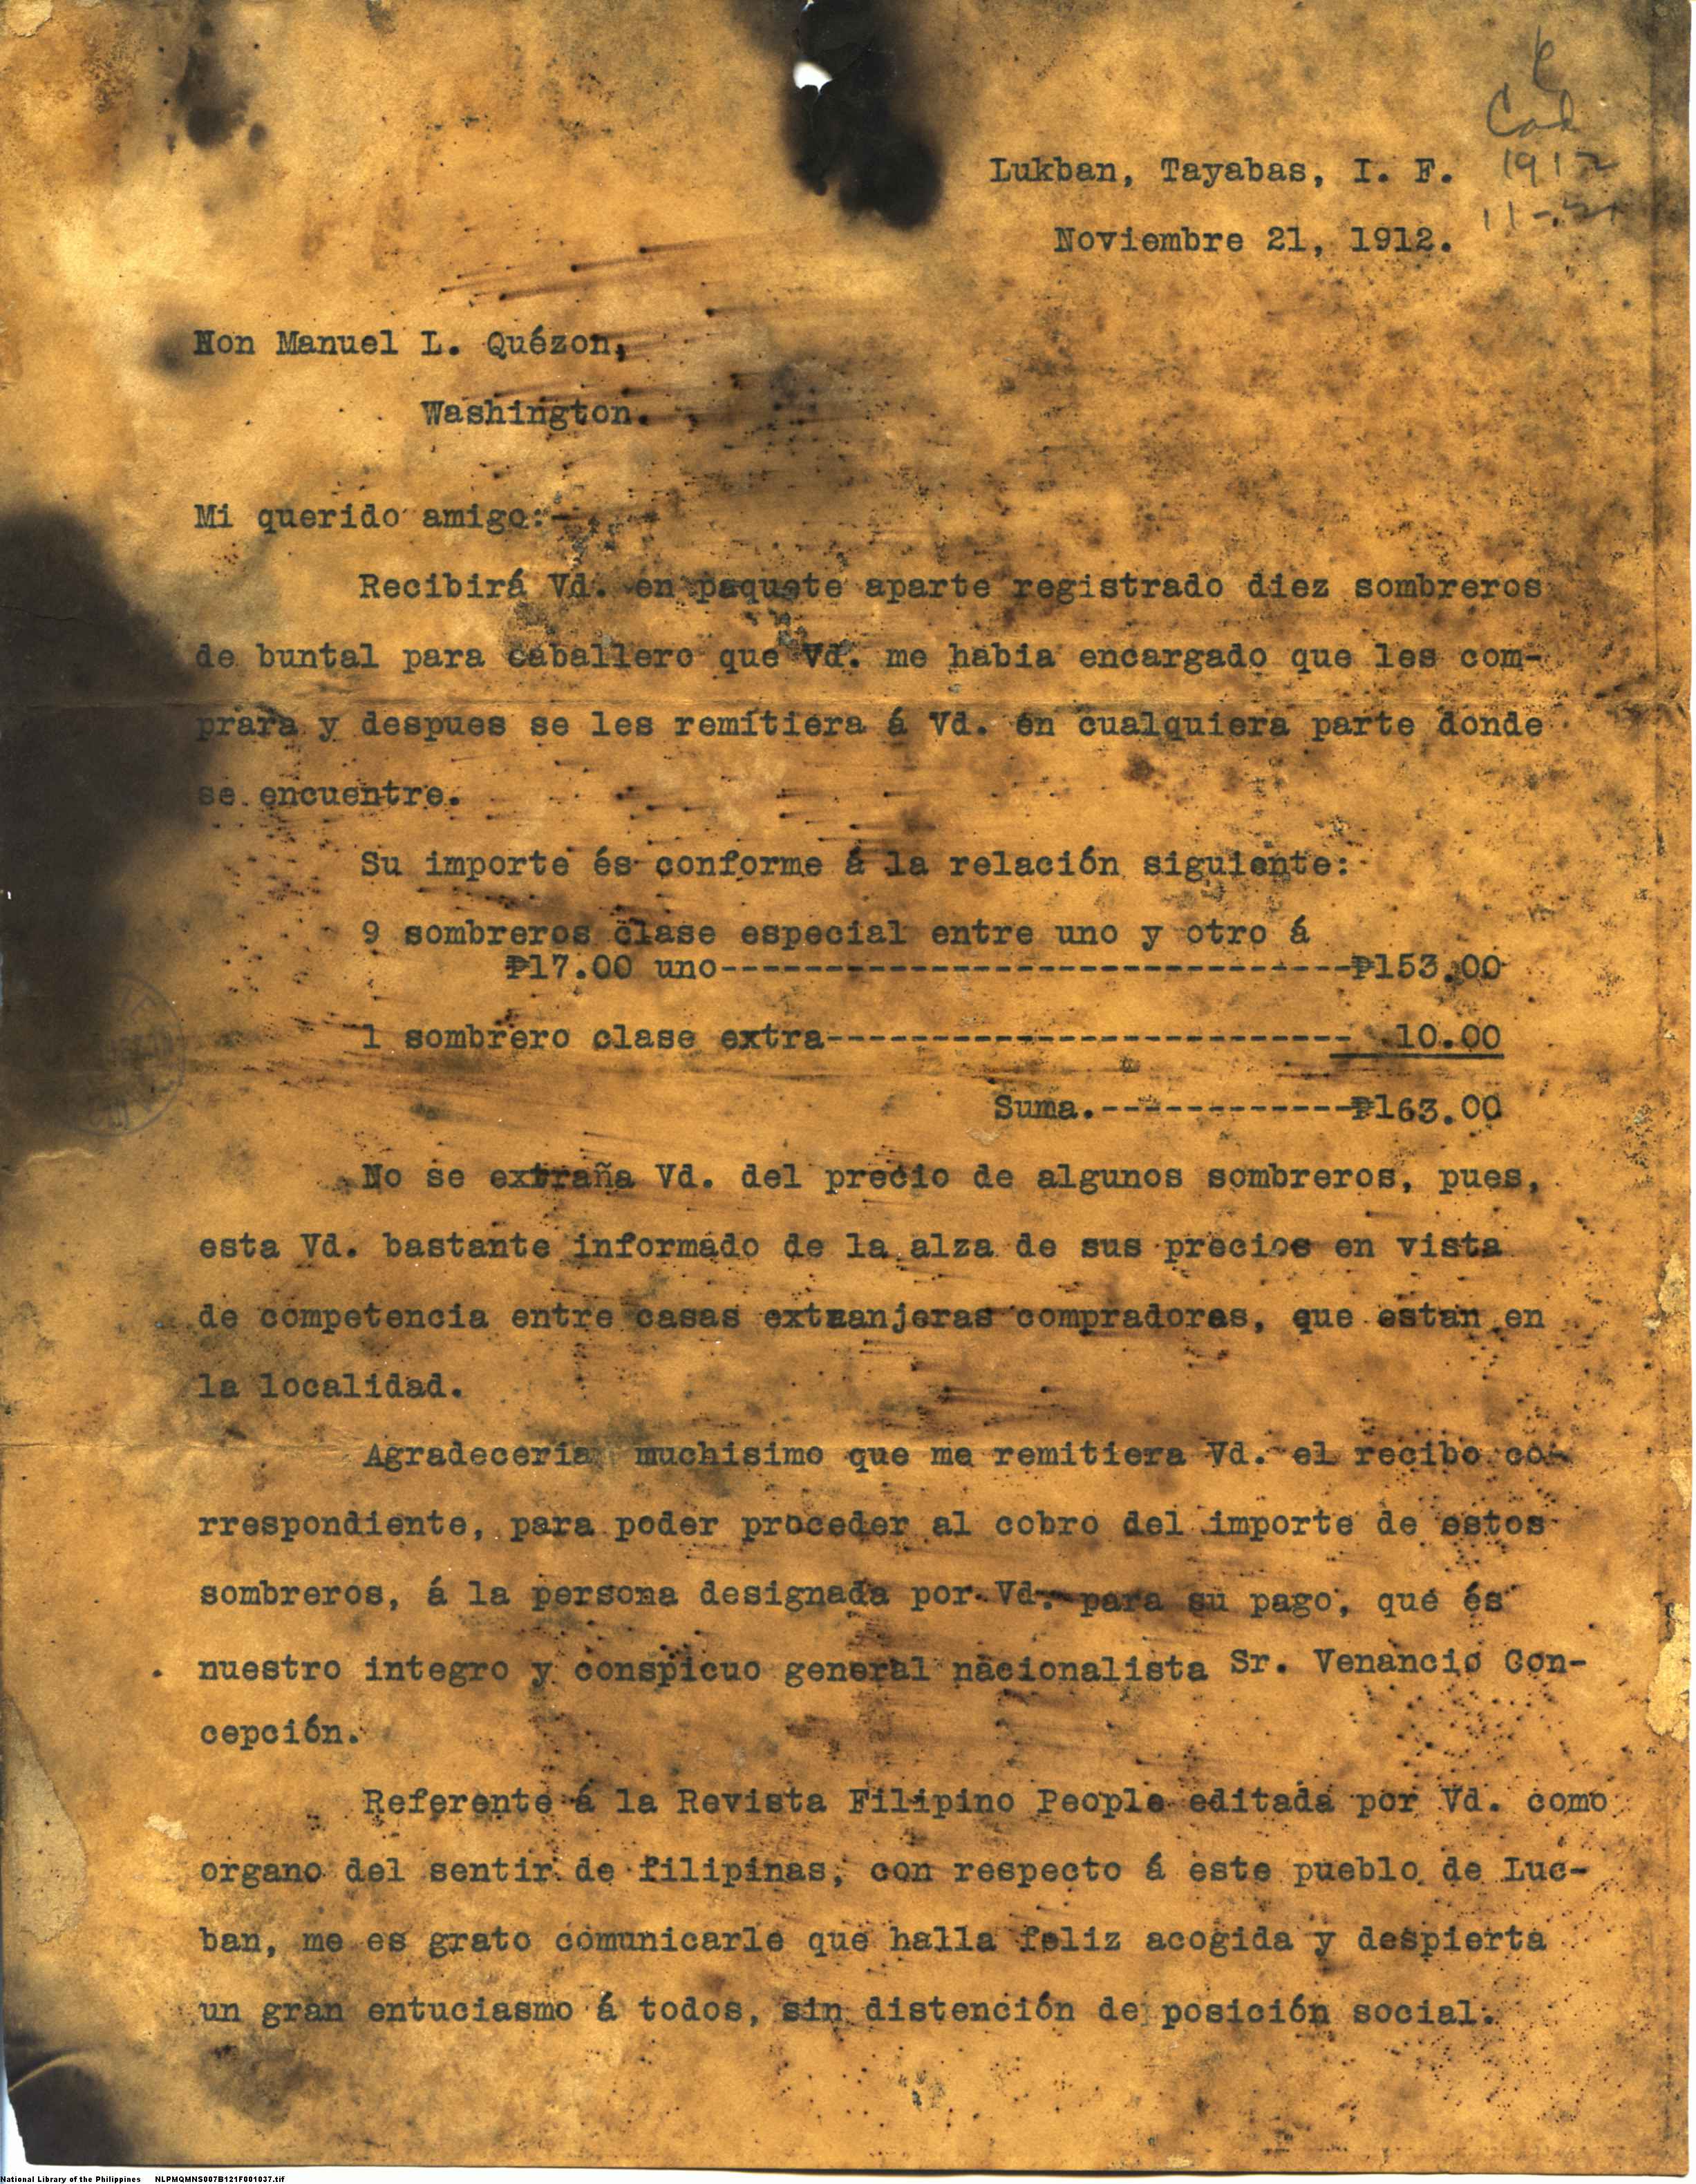 Cod
1912
11-21
Lukban, Tayabas, I. F.
Noviembre 21, 1912.
Hon Manuel L. Quézon,
Washington.
Mi querido amigo:-
Recibirá Vd. en paquete aparte registrado diez sombreros
de buntal para caballero que Vd. me habia encargado que les com-
prara y despues se les remitiera á Vd. en cualquiera parte donde
se encuentre.
Su importe és conforme á la relación siguiente:
9 sombreros clase especial entre uno y otro á
₱17.00 uno------------------------------₱153.00
1 sombrero clase extra------------------------- 10.00
Suma.------------₱163.00
No se extraña Vd. del precio de algunos sombreros, pues,
esta Vd. bastante informado de la alza de sus precios en vista
de competencia entre casas extranjeras compradoras, que estan en
la localidad.
Agradeceria muchisimo que me remitiera Vd. el recibo co-
rrespondiente, para poder proceder al cobro del importe de estos
sombreros, á la persona designada por Vd. para su pago, que és
nuestro integro y conspicuo general nacionalista Sr. Venancio Con-
cepción.
Referente á la Revista Filipino People editada por Vd. como
organo del sentir de filipinas, con respecto á este pueblo de Luc-
ban, me es grato comunicarle que halla feliz acogida y despierta
un gran entuciasmo á todos, sin distención de posición social.
National Library of the Philippines NLPMQMNS007B121F001037.tif